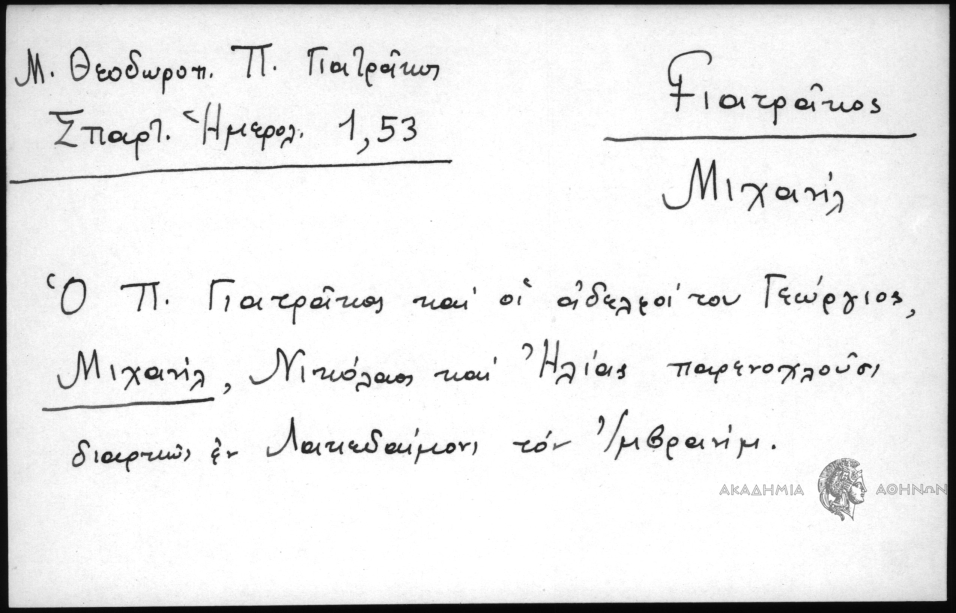 Μ. Θεοδωροπ. Π. Γιατρᾶκος
Σπαρτ. Ἡμερολ. 1,53
Γιατρᾶκος
Μιχαήλ
Ὁ Π. Γιατρᾶκος καί οἱ ἀδελφοί του Γεώργιος,
Μιχαήλ, Νικόλαος καί Ἠλίας παρενοχλοῦσι
διαρκῶς ἐν Λακεδαίμονι τόν Ἰμβραήμ.
ΑΚΑΔΗΜΙΑ ΑΘΗΝΩΝ